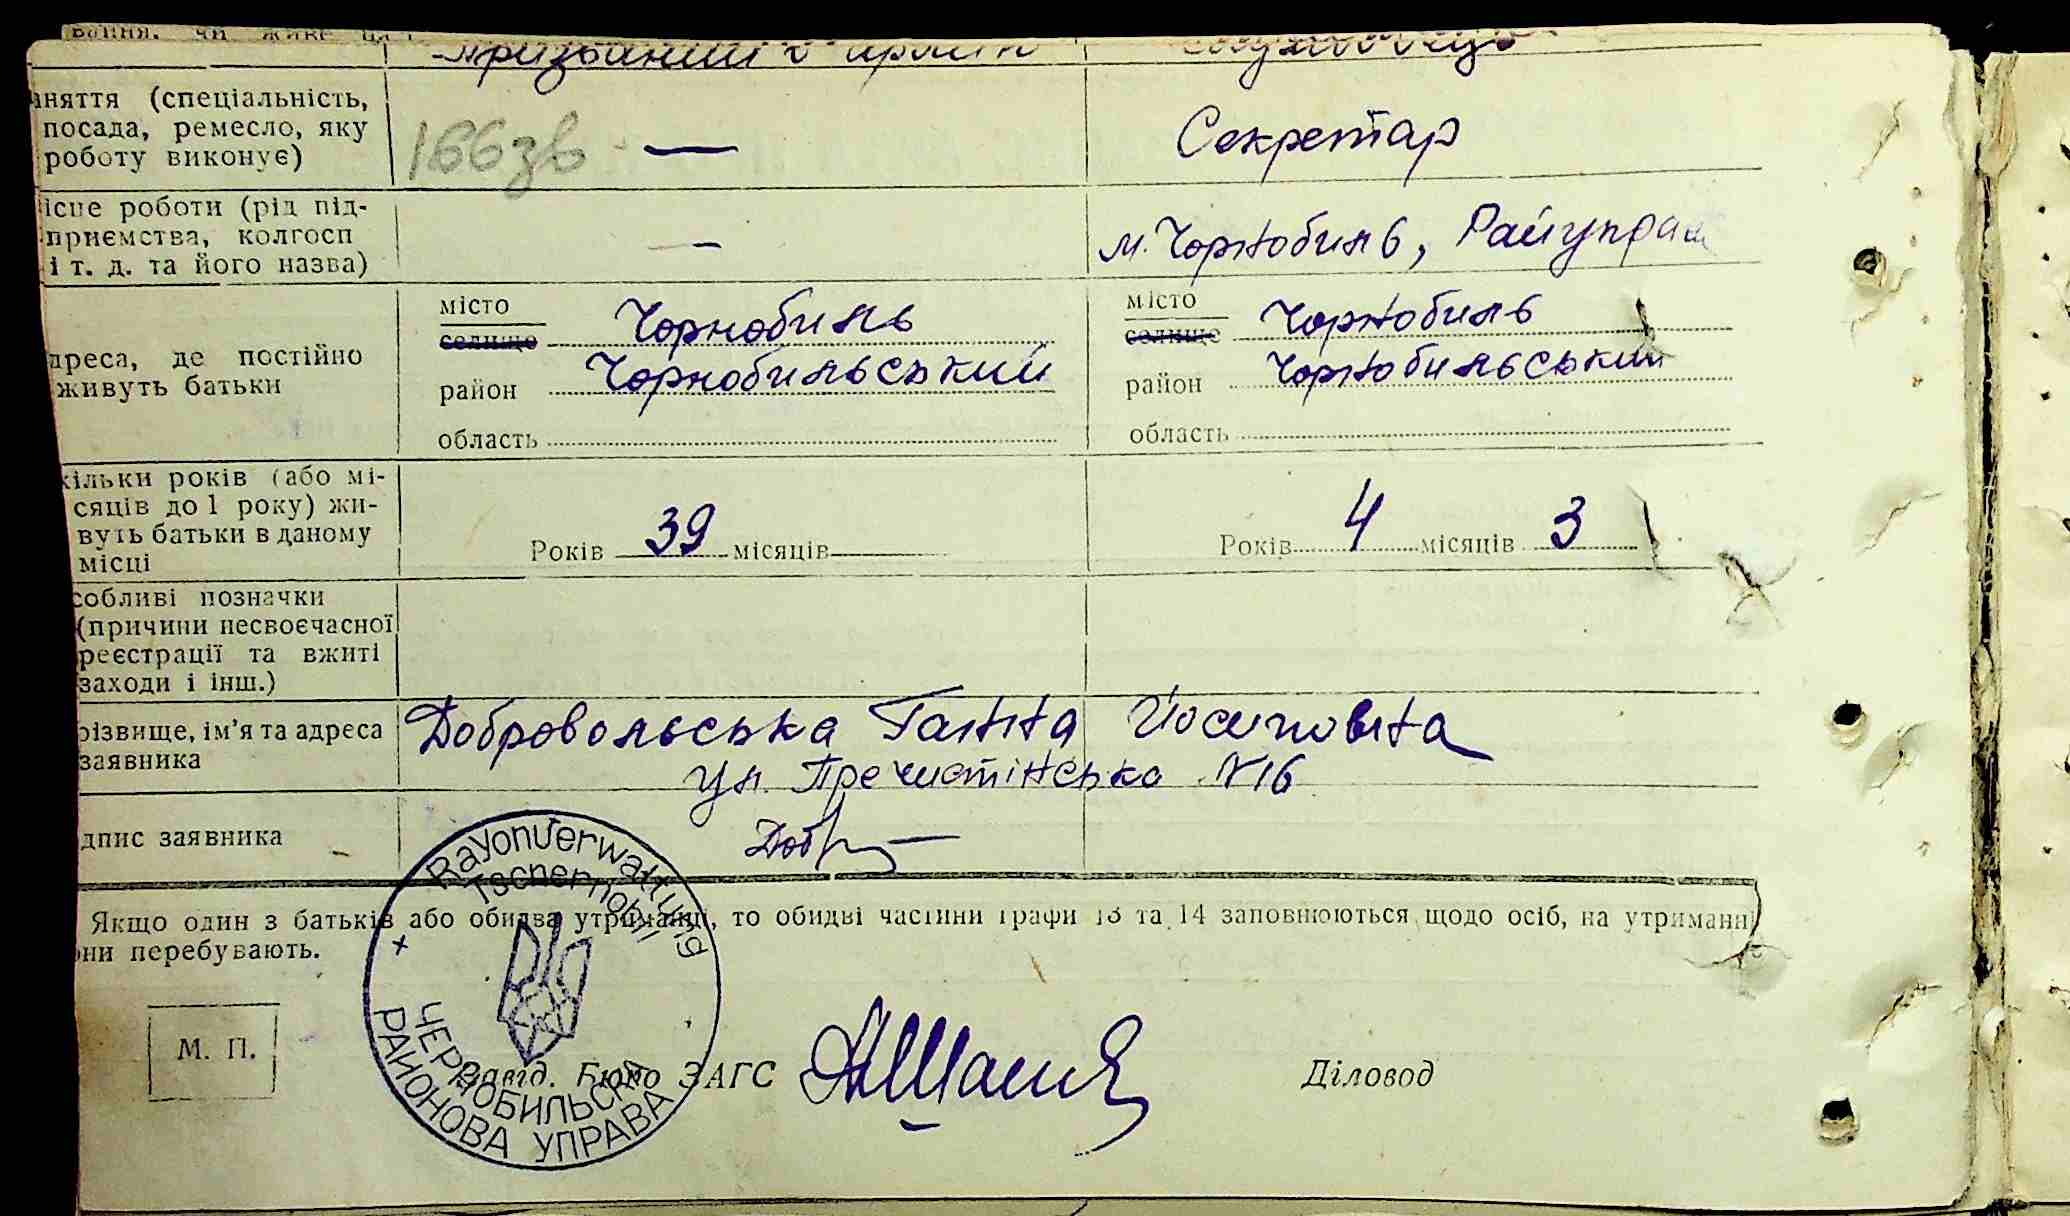 призваний в армію
аняття (спеціальність,
посада, ремесло, яку
роботу виконує)
166зв — Секретар
ісце роботи (рід під-
приємства, колгосп
і т. д. та його назва)
— м. Чорнобиль, Райуправ
дреса, де постійно
живуть батьки
місто
селище Чорнобиль
район Чорнобильський
область
місто
селище Чорнобиль
район Чорнобильський
область
кільки років (або мі-
сяців до 1 року) жи-
вуть батьки в даному
місці
Років 39 місяців
Років 4 місяців 3
собливі позначки
(причини несвоєчасної
реєстрації та вжиті
заходи і інш.)
різвище, ім'я та адреса
заявника
Добровольська Ганна Йосиповна
ул. Пречистінська №16
дпис заявника
Доб
Rayonverwaltung
Tschernobyl
Якщо один з батьків або обидва утриманці, то обидві частини графи 13 та 14 заповнюються щодо осіб, на утриманні
они перебувають.
М. П.
Завід. Бюро ЗАГС
Діловод
ЧЕРНОБИЛЬСКА
РАЙОНОВА УПРАВА